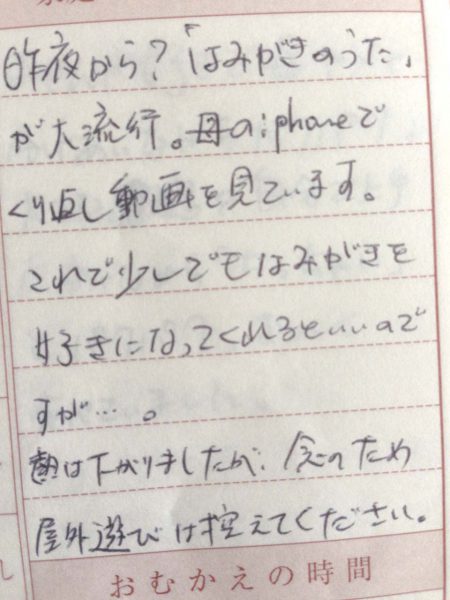 昨夜から？「はみがきのうた」
が大流行。母のiphoneで
くり返し動画を見ています。
これで少しでもはみがきを
好きになってくれるといいので
すが…。
熱は下がりましたが、念のため
屋外遊びは控えてください。
おむかえの時間